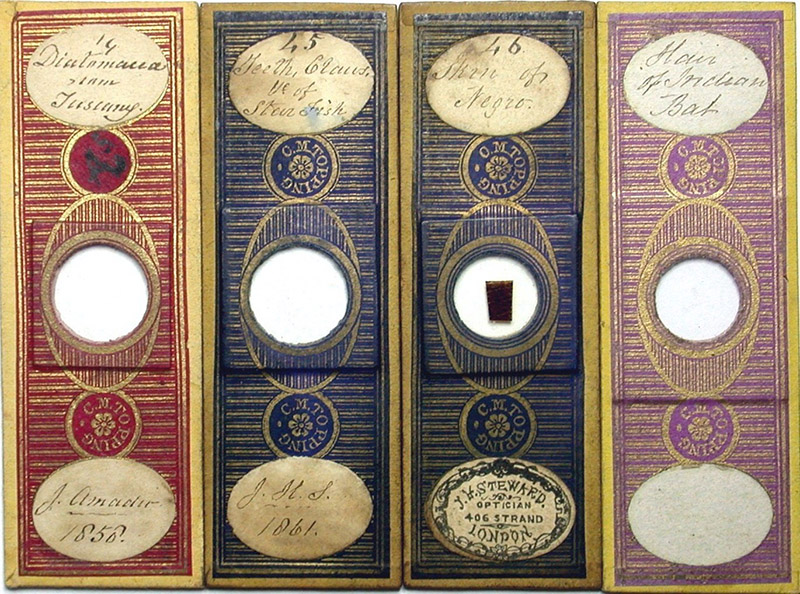 19
Diatomacea
from
Tuscany.
C.M.TOPPING
J. Amadio
1858.
45
Teeth, Claws,
&c of
Star Fish
C.M.TOPPING
C.M.TOPPING
J. H. S.
1861.
46.
Skin of
Negro.
C.M.TOPPING
C.M.TOPPING
J.H. STEWARD.
OPTICIAN
406 STRAND
LONDON
Hair
of Indian
Bat
C.M.TOPPING
C.M.TOPPING